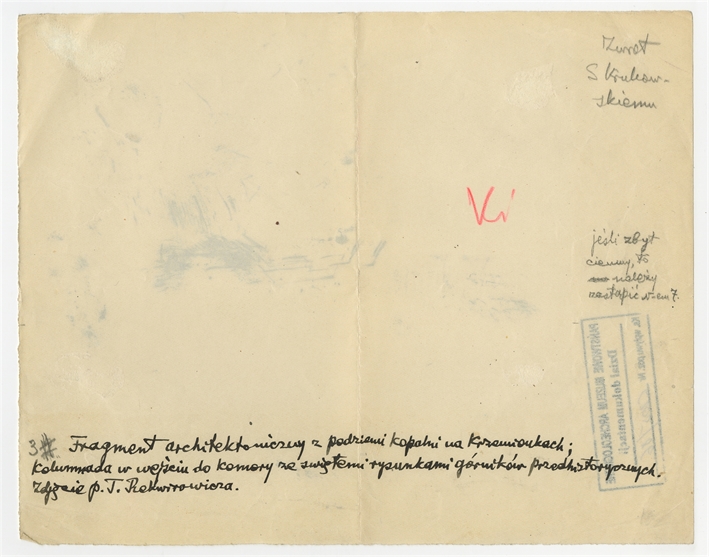 Zwrot
S Krukow-
skiemu
Ki
jeśli zbyt
ciemny, to
należy
zastąpić
PAŃSTWOWE MUZEUM ARCHEOLOGICZNE
Dział dokumentacji
3 Fragment architektoniczny z podziemi kopalni na Krzemionkach;
kolumnada w wejściu do komory ze świętemi rysunkami górników przedhistorycznych.
Zdjęcie p. T. Rekwirowicza.